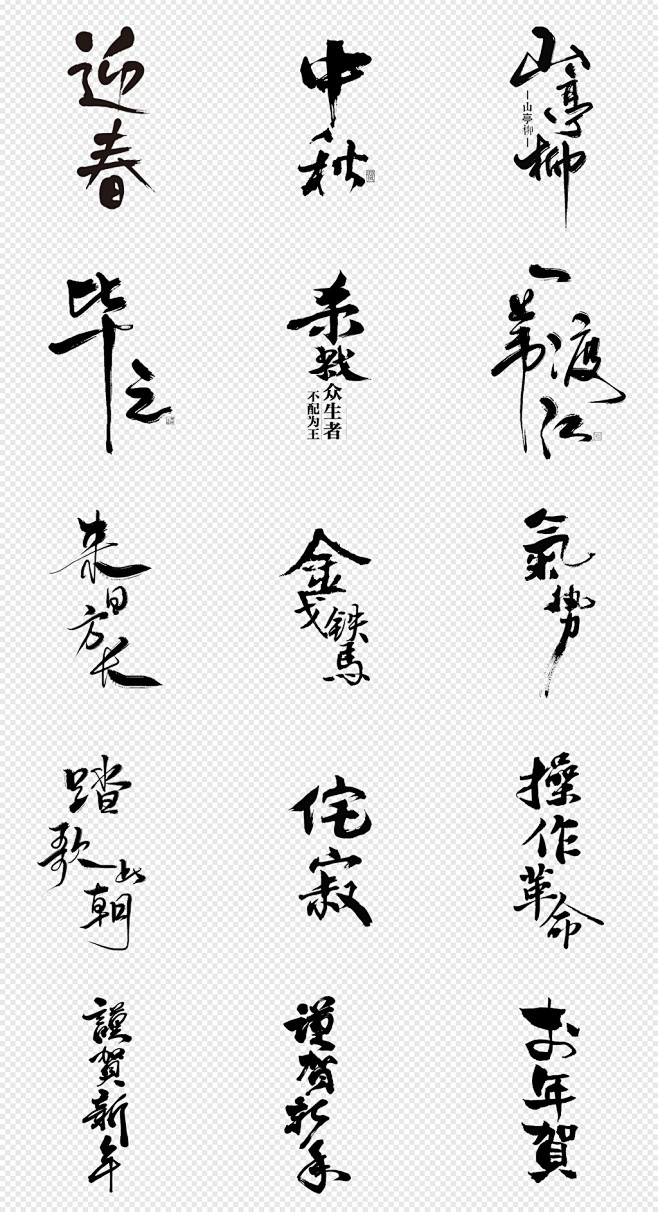 迎春
中秋
山亭柳
山亭柳
毕之
杀戮
众生者
不配为王
一苇渡江
来日方长
金戈鐵馬
氣势
踏歌此朝
侘寂
操作革命
謹賀新年
謹賀新年
お年賀